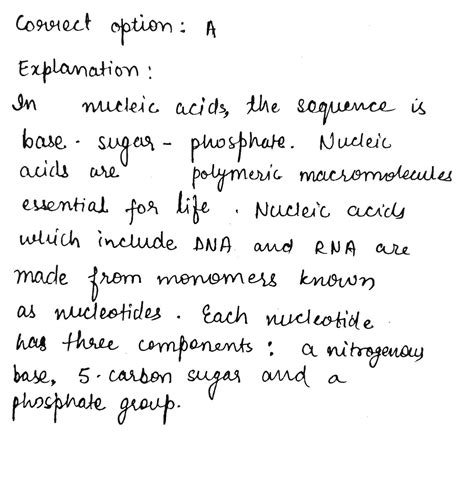 Correct option: A
Explanation:
In nucleic acids, the sequence is
base - sugar - phosphate. Nucleic
acids are polymeric macromolecules
essential for life. Nucleic acids
which include DNA and RNA are
made from monomers known
as nucleotides. Each nucleotide
has three components: a nitrogenous
base, 5-carbon sugar and a
phosphate group.